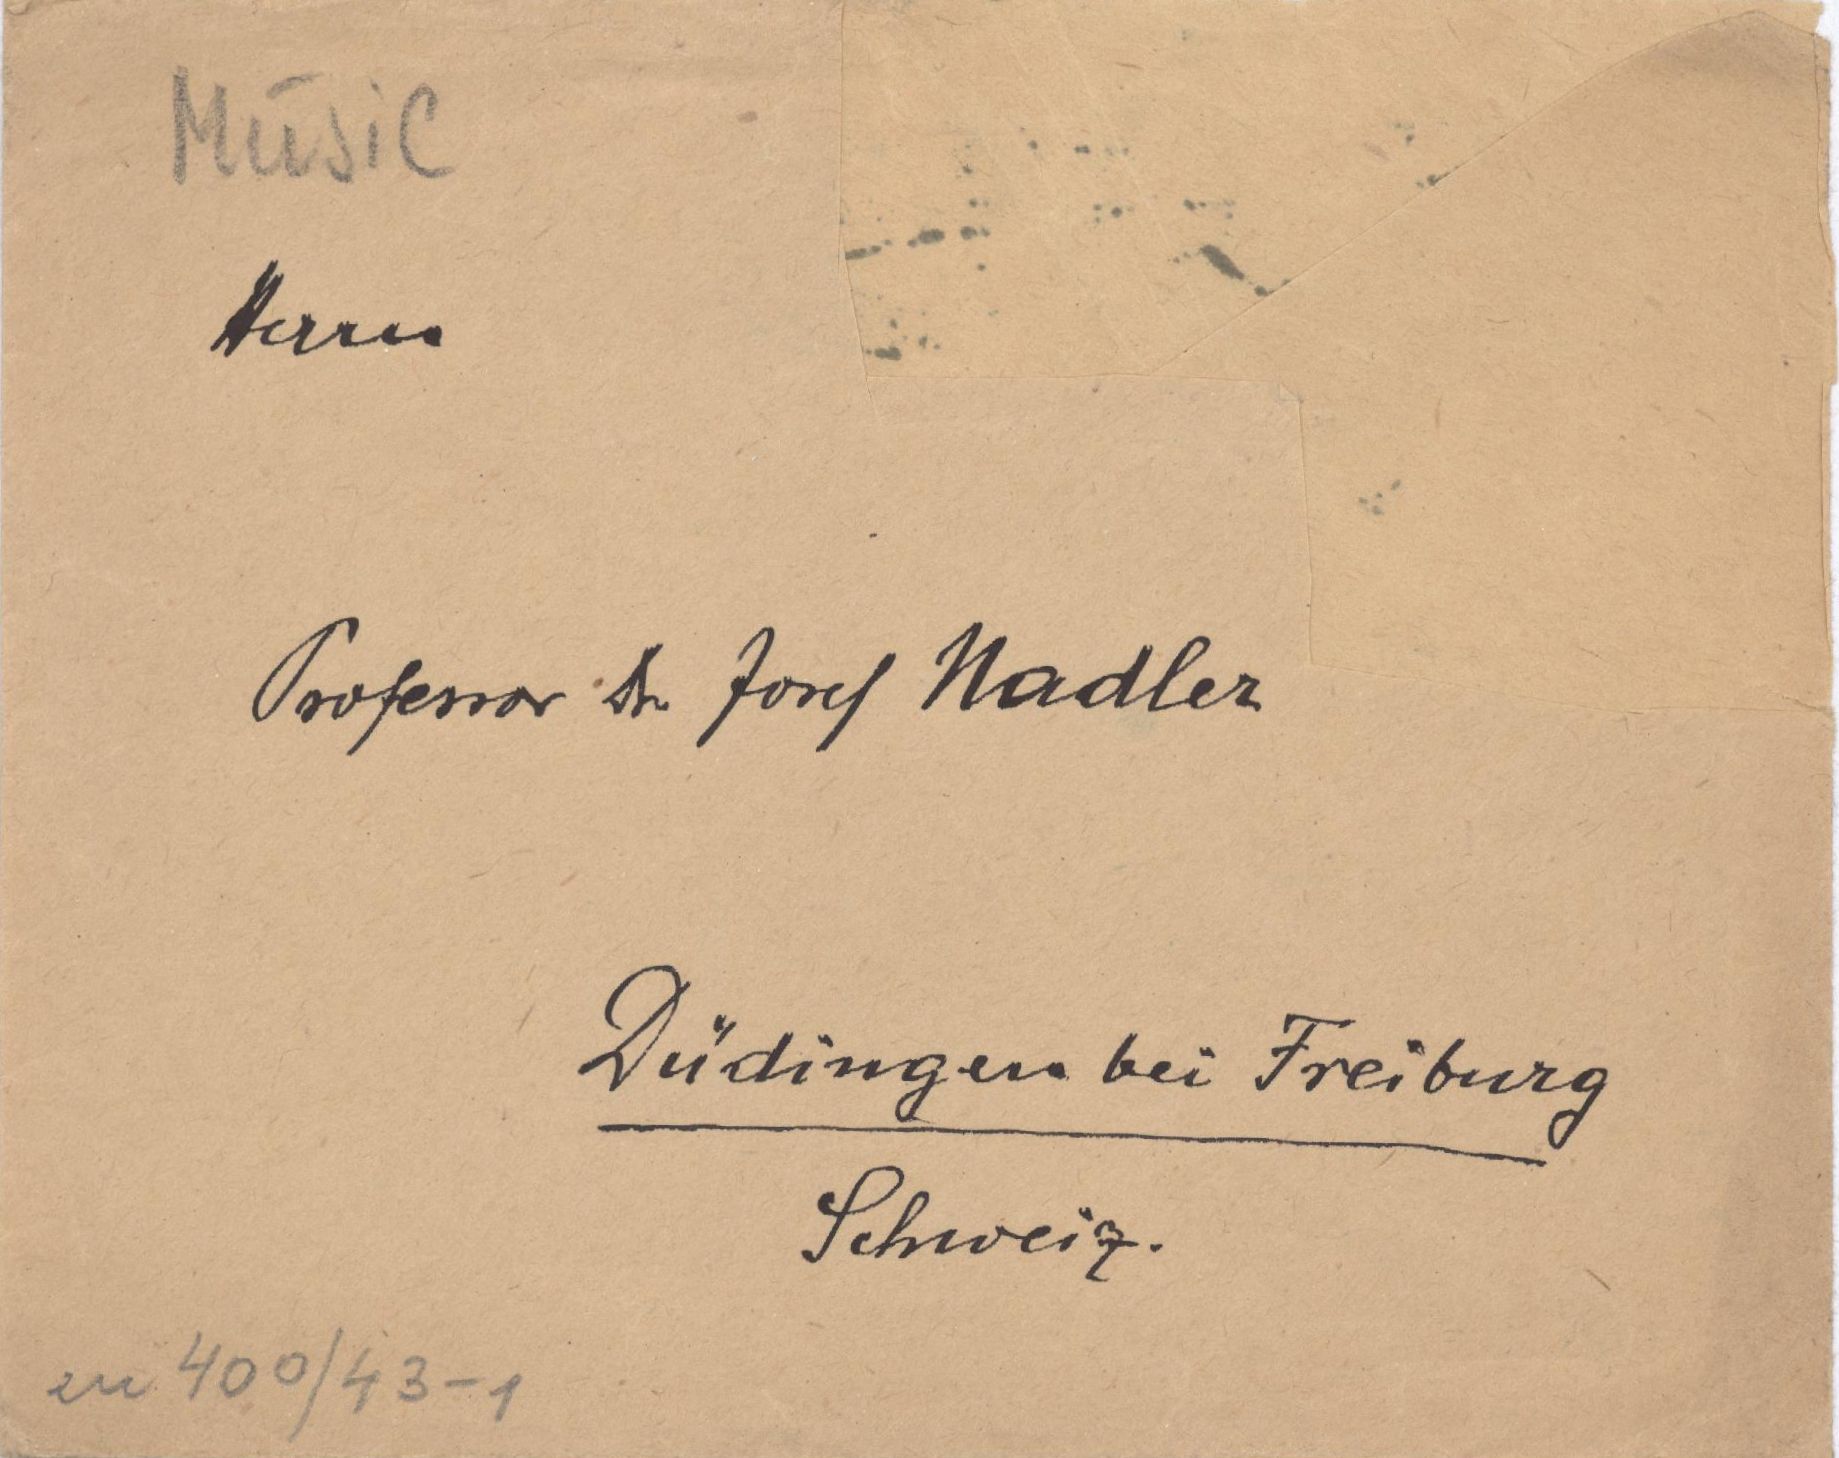 Músic
Herrn
Professor Dr Josef Nadler
Düdingen bei Freiburg
Schweiz.
zu 400/43-1